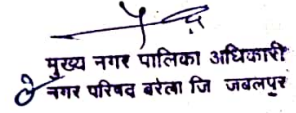 मुख्य नगर पालिका अधिकारी
नगर परिषद बरेला जि जबलपुर